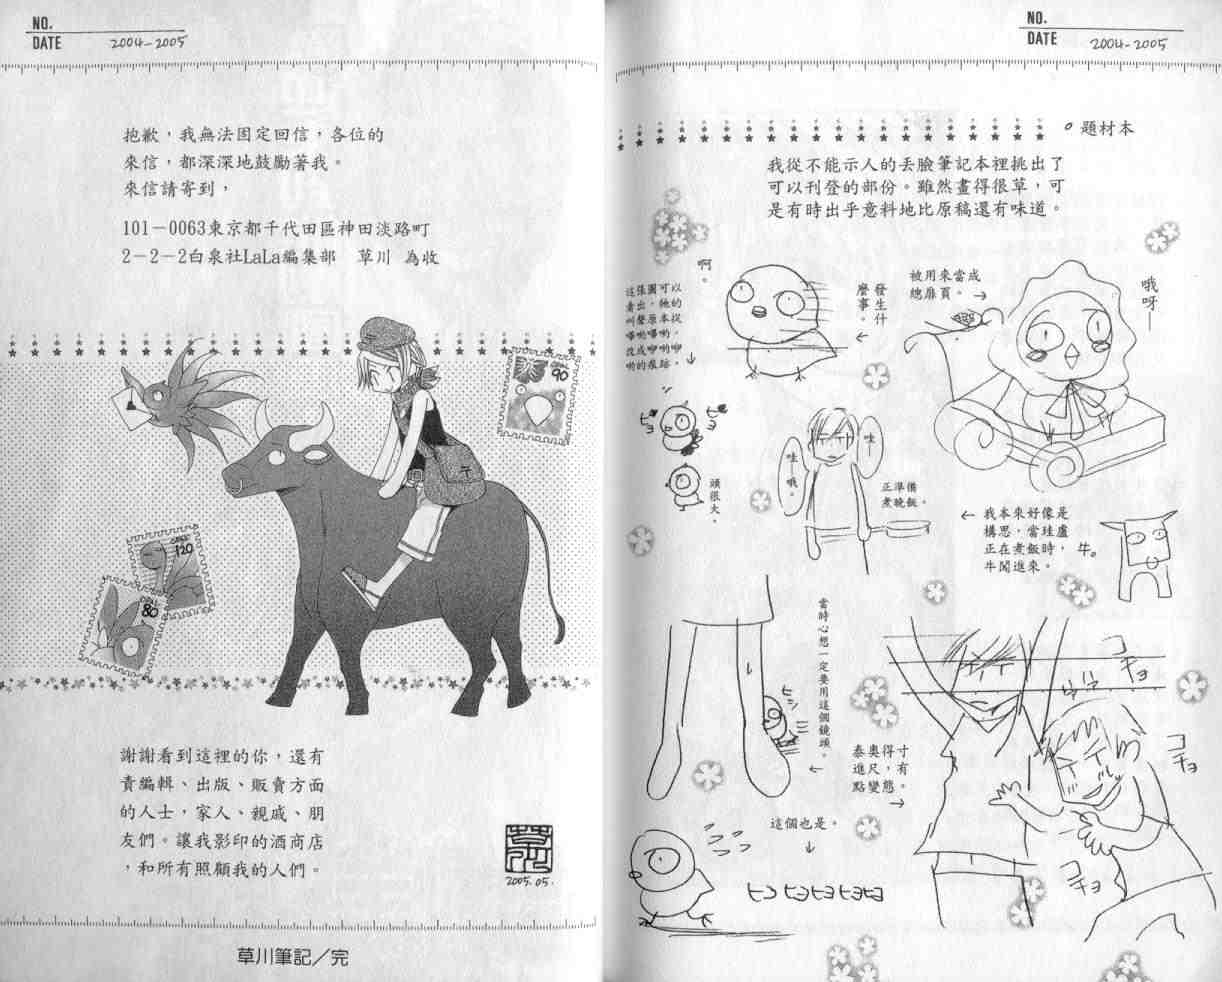 NO.
DATE 2004-2005
題材本
我從不能示人的丟臉筆記本裡挑出了
可以刊登的部份。雖然畫得很草，可
是有時出乎意料地比原稿還有味道。
哦
呀
｜
被用來當成
總扉頁。→
發生什
麼事。
←
啊。
這張圖可以
看出，牠的
叫聲原本從
嗶喲嗶喲，
改成咿喲咿
喲的痕跡。
↓
ヒヨ
ヒヨ
頭很大。
哇｜
哇｜哦。
正準備
煮晚飯。
← 我本來好像是
構思，當珪盧
正在煮飯時，
牛闖進來。
牛。
當時心想一定要用這個鏡頭。
←
ヒシ
コチョ
泰奧得寸
進尺，有
點變態。
→
コチョ
コチョ
這個也是。
↓
ヒコ ヒヨヒヨヒヨ
NO.
DATE 2004-2005
抱歉，我無法固定回信，各位的
來信，都深深地鼓勵著我。
來信請寄到，
101－0063東京都千代田區神田淡路町
2－2－2白泉社LaLa編集部　草川　為收
90
120
80
謝謝看到這裡的你，還有
責編輯、出版、販賣方面
的人士，家人、親戚、朋
友們。讓我影印的酒商店
，和所有照顧我的人們。
草川
2005.05.
草川筆記／完